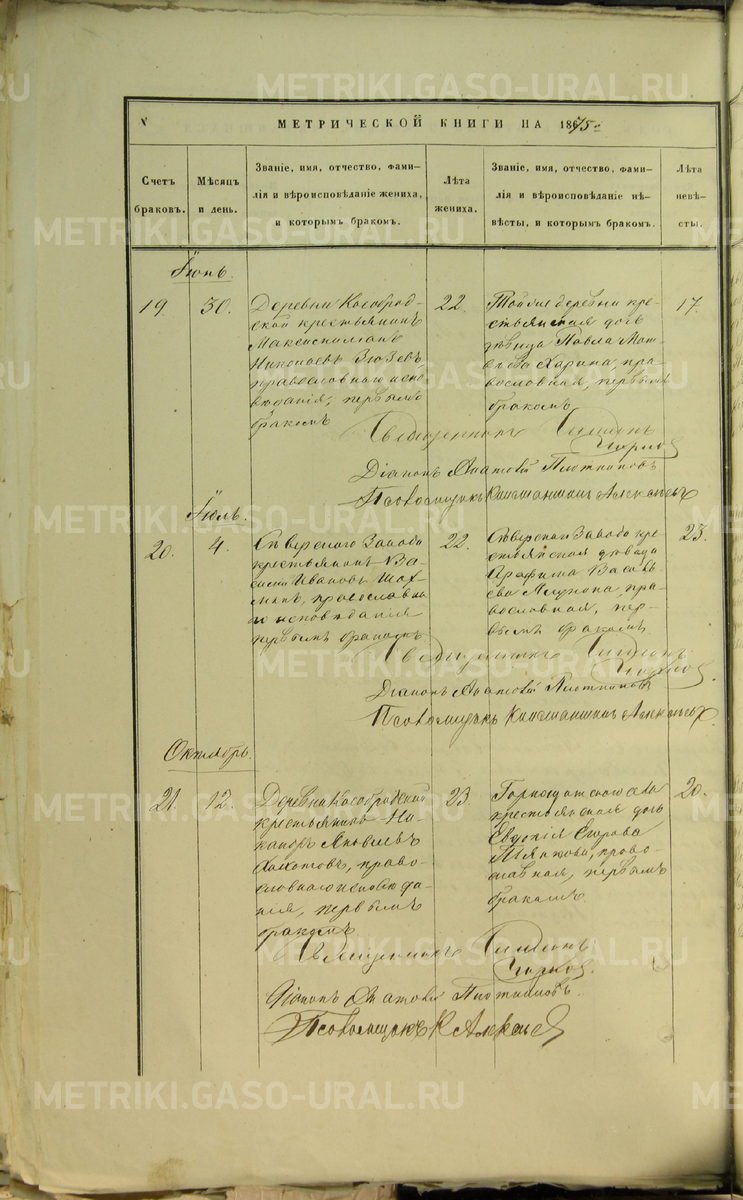 METRIKI.GASO-URAL.RU
МЕТРИЧЕСКОЙ КНИГИ НА 1875 г
Счетъ браковъ.
Мѣсяцъ и день.
Званіе, имя, отчество, фами-
лія и вѣроисповѣданіе жениха,
и которымъ бракомъ.
Лѣта жениха.
Званіе, имя, отчество, фами-
лія и вѣроисповѣданіе нѣ-
вѣсты, и которымъ бракомъ.
Лѣта невѣ-
сты.
Іюнь.
19.
30.
Деревни Кособрод-
ской крестьянинъ
Максимиліанъ
Николаевъ Зюзевъ,
православнаго испо
вѣданія, первымъ
бракомъ
22.
Той же деревни кре-
стьянская дочь
дѣвица Павла Мат-
вѣева Харина, пра-
вославная, первымъ
бракомъ
17.
Священникъ
Діаконъ Плотниковъ
Псаломщикъ Алексѣевъ
Іюль.
20.
4.
Сѣверскаго Завода
крестьянинъ Ва-
силій Ивановъ Шах-
минъ, православна
го исповѣданія
первымъ бракомъ
22.
Сѣверскаго Завода кре-
стьянская дѣвица
Васильева
пра-
вославная, пер-
вымъ бракомъ.
23.
Священникъ
Діаконъ Плотниковъ
Псаломщикъ Алексѣевъ
Октябрь.
21.
12.
Деревни Кособродской
крестьянинъ Ни-
каноръ Яковлевъ
право-
славнаго исповѣда-
нія, первымъ
бракомъ
23.
Горнощитскаго села
крестьянская дочь
Евдокія Егорова
право-
славная, первымъ
бракомъ
20.
Священникъ
Діаконъ Плотниковъ.
Псаломщикъ К Алексѣев